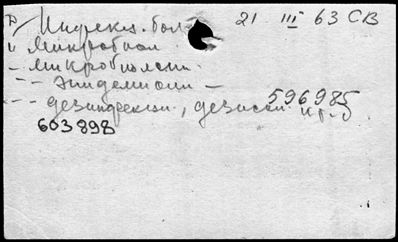 Инфекц. бол 21 III 63 СВ
" Микробиол
– микробиологи.
– – Эпидемиол –
– – дезинфекци., дезисек. 596985
603898